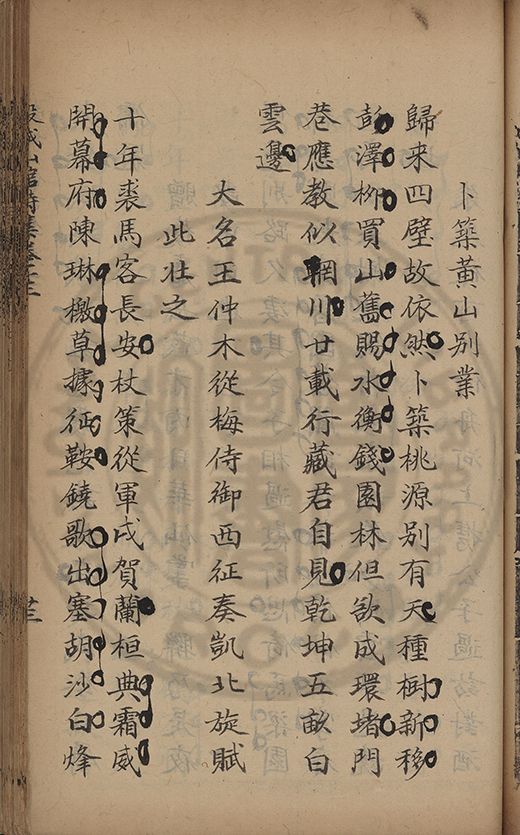 卜築黃山別業
歸来四壁故依然卜築桃源別有天種樹新移
彭澤栁買山舊賜水衡錢園林但欲成環堵門
巷應教似輞川廿載行藏君自見乾坤五畝白
雲邊
大名王仲木從梅侍御西征奏凱北旋賦
此壯之
十年裘馬客長安杖策從軍戍賀蘭桓典霜威
開幕府陳琳檄草據征鞍鐃歌出塞胡沙白烽